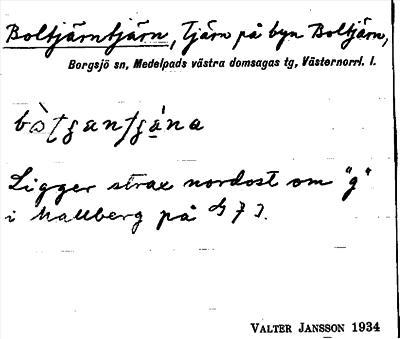 Boltjärntjärn, Tjärn på byn Boltjärn,
Borgsjö sn, Medelpads västra domsagas tg, Västernorrl. l.
Ligger strax nordost om "g"
i Mallberg på
VALTER JANSSON 1934